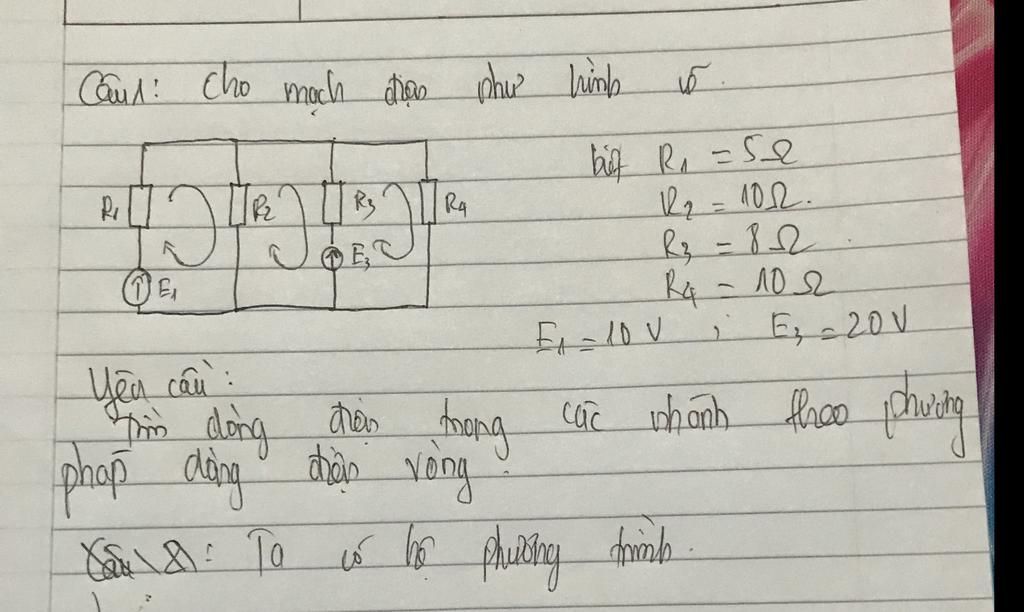 Câu 1: Cho mạch điện như hình có.
R1 R2 R3 R4
E1 E3
biết R1 = 5Ω
R2 = 10Ω.
R3 = 8Ω
R4 = 10Ω
E1 = 10V ; E3 = 20V
Yêu cầu:
Tìm dòng điện trong các nhánh theo phương
pháp dòng điện vòng.
Câu 2: Ta có hệ phương trình.